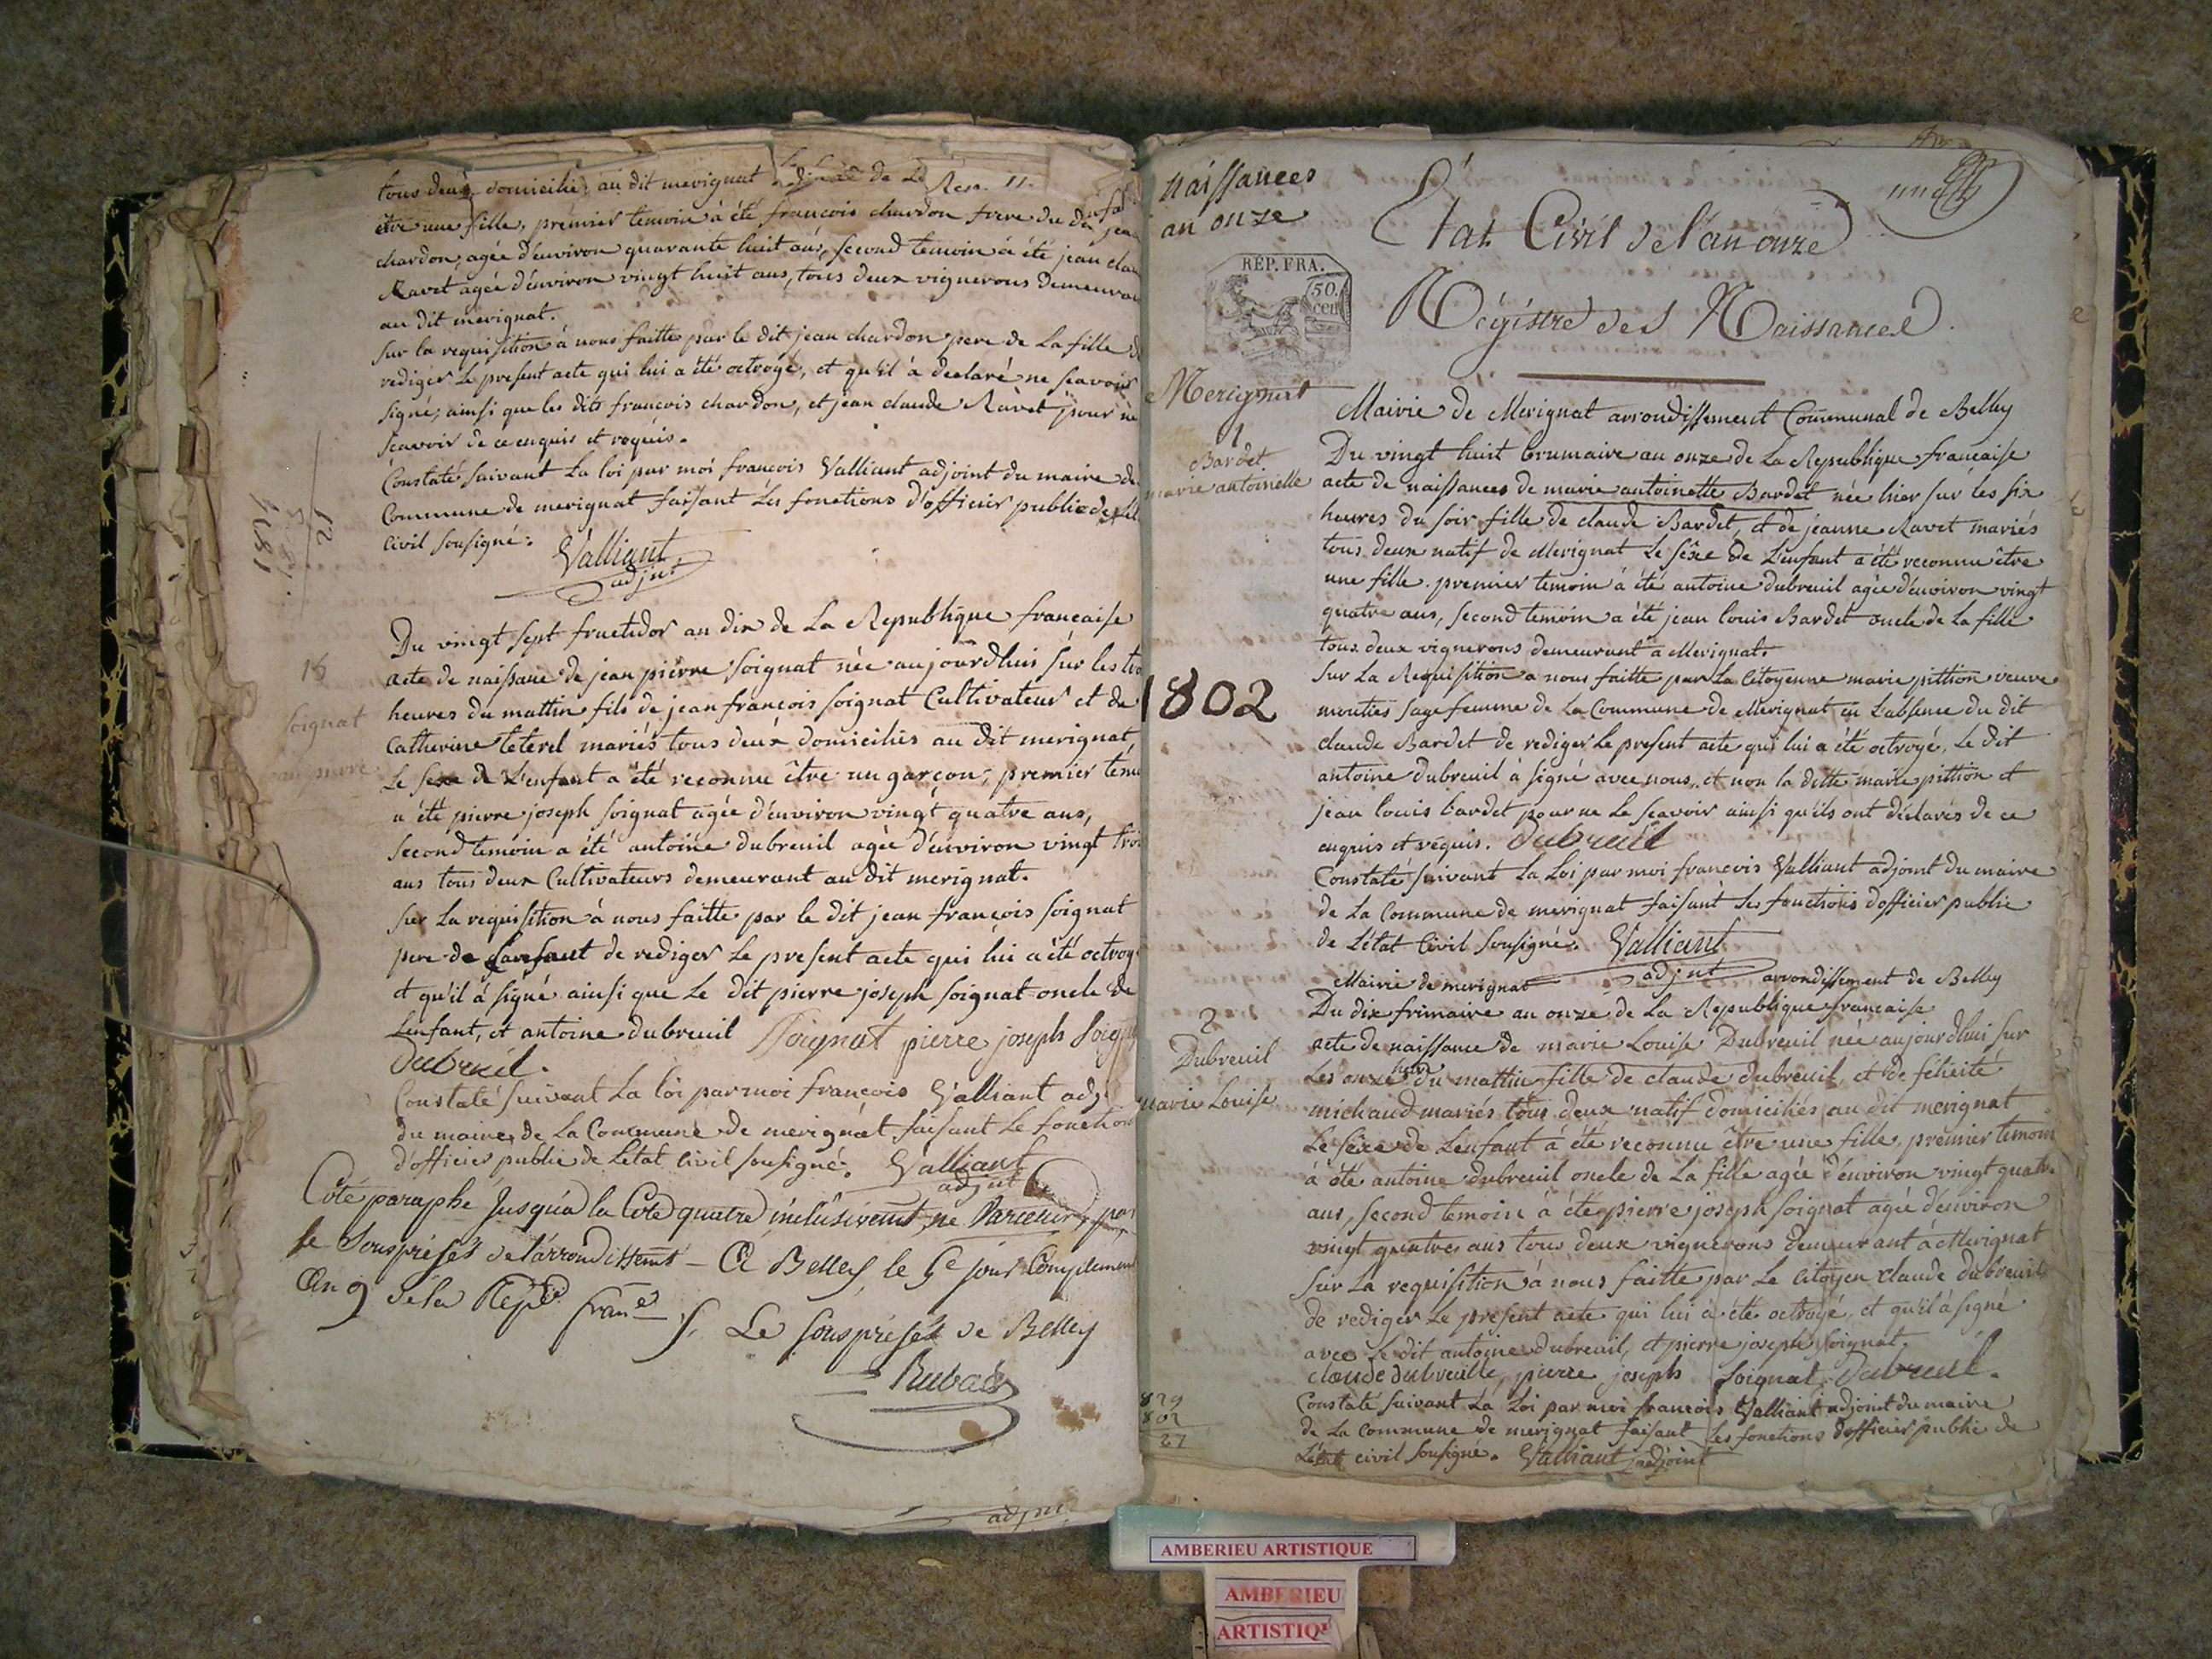 tous deux domiciliés au dit merignat le sexe de L
Rep. 11.
être une fille, premier temoin à été françois chardon frere du dit jean
chardon, agée d'environ quarante huit ans, second temoin à été jean clau
Ravet agée d'environ vingt huit ans, tous deux vignerons demeuran
au dit merignat.
sur la requisition à nous faitte par le dit jean chardon pere de La fille d
rediger Le present acte qui lui a été octroyé, et qu'il à declaré ne scavoir
signé, ainsi que les dits françois chardon, et jean claude Ravet pour ne
scavoir de ce enquis et requis.
Constaté suivant La loi par moi françois Valliant adjoint du maire de
Commune de merignat faisant Les fonctions d'officier public de
civil sousigné.
Valliant
adjnt
Du vingt sept fructidor an dix de La Republique française
16
acte de naissance de jean pierre soignat née aujourdhui sur les tro
soignat
heures du mattin fils de jean françois soignat Cultivateur et de
Catherine teterel mariés tous deux domiciliés au dit merignat
Le sexe de L'enfant a été reconnu être un garçon; premier temo
a été pierre joseph soignat agée d'environ vingt quatre ans,
second temoin a été antoine dubreuil agée d'environ vingt troi
ans tous deux Cultivateurs demeurant au dit merignat.
sur La requisition à nous faitte par le dit jean françois soignat
pere de L'enfant de rediger Le present acte qui lui a été octroy
et qu'il à signé ainsi que Le dit pierre joseph soignat oncle de
Lenfant, et antoine dubreuil Soignat pierre joseph Soign
Dubreuil.
Constaté suivant La loi par moi françois Valliant adj
du maire de La Commune de merignat faisant Le fonction
d'officier public de Letat Civil sousigné. Valliant
adjnt
Coté paraphé jusqu'à la Cote quatre inclusivemt, ne Varietur, par
le Souspréfet de l'arrondissemt - A Belley, le 5e jour Complement
An 9 de la Répe. frane.
Le souspréfet de Belley
Rubat
adjnt
naissances
an onze
État Civil de l'an onze
RÉP. FRA.
50.
cen
Régistre des Naissances.
Merignat
Mairie de Merignat arrondissement Communal de Belley
1
Du vingt huit brumaire an onze de La Republique française
Bardet
marie antoinette
acte de naissances de marie antoinette Bardet née hier sur les six
heures du soir fille de claude Bardet, et de jeanne Ravet mariés
tous deux natif de Merignat Le sexe de L'enfant a été reconnu être
une fille. premier temoin à été antoine dubreuil agée d'environ vingt
quatre ans, second temoin a été jean louis Bardet oncle de La fille
tous deux vignerons demeurant a Merignat.
sur La Requisition a nous faitte par La Citoyenne marie pittion veuve
1802
mouttes sage femme de La Commune de Merignat en L'absence du dit
claude Bardet de rediger Le present acte qui lui a été octroyé, Le dit
antoine dubreuil à signé avec nous, et non la ditte marie pittion et
jean louis bardet pour ne Le scavoir ainsi qu'ils ont déclarés de ce
enquis et requis. Dubreuil
Constaté suivant La Loi par moi françois Valliant adjoint du maire
de La Commune de merignat faisant Les fonctions d'officier public
de L'état Civil sousigné. Valliant
adjnt
Mairie de merignat arrondissement de Belley
2
Du dix frimaire an onze de La Republique française
Dubreuil
marie Louise
acte de naissance de marie Louise Dubreuil née aujourdhui sur
Les onze heur du mattin fille de claude dubreuil, et de felicité
michaud mariés tous deux natif domiciliés au dit merignat
Le sexe de Lenfant à été reconnu être une fille, premier temoin
à été antoine dubreuil oncle de La fille agée d'environ vingt quatre
ans, second temoin à été pierre joseph soignat agée d'environ
vingt quatre ans tous deux vignerons demeurant à Merignat
sur La requisition à nous faitte par Le Citoyen claude dubreuil
de rediger Le present acte qui lui à été octroyé, et qu'il à signé
avec Le dit antoine dubreuil, et pierre joseph soignat.
claude dubreuille, pierre joseph Soignat, Dubreuil.
829
802
27
Constaté suivant La Loi par moi françois Valliant adjoint du maire
de La Commune de merignat faisant Les fonctions d'officier public de
L'état civil sousigné. Valliant adjoint
AMBERIEU ARTISTIQUE
AMBERIEU
ARTISTIQ